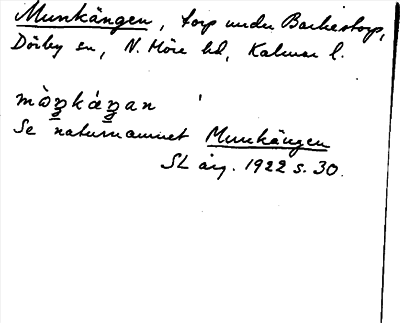 Munkängen, torp under Barkestorp,
Dörby sn, N. Möre hd, Kalmar l.
mòŋkáŋan
Se naturnamnet Munkängen
SL årg. 1922 s. 30.